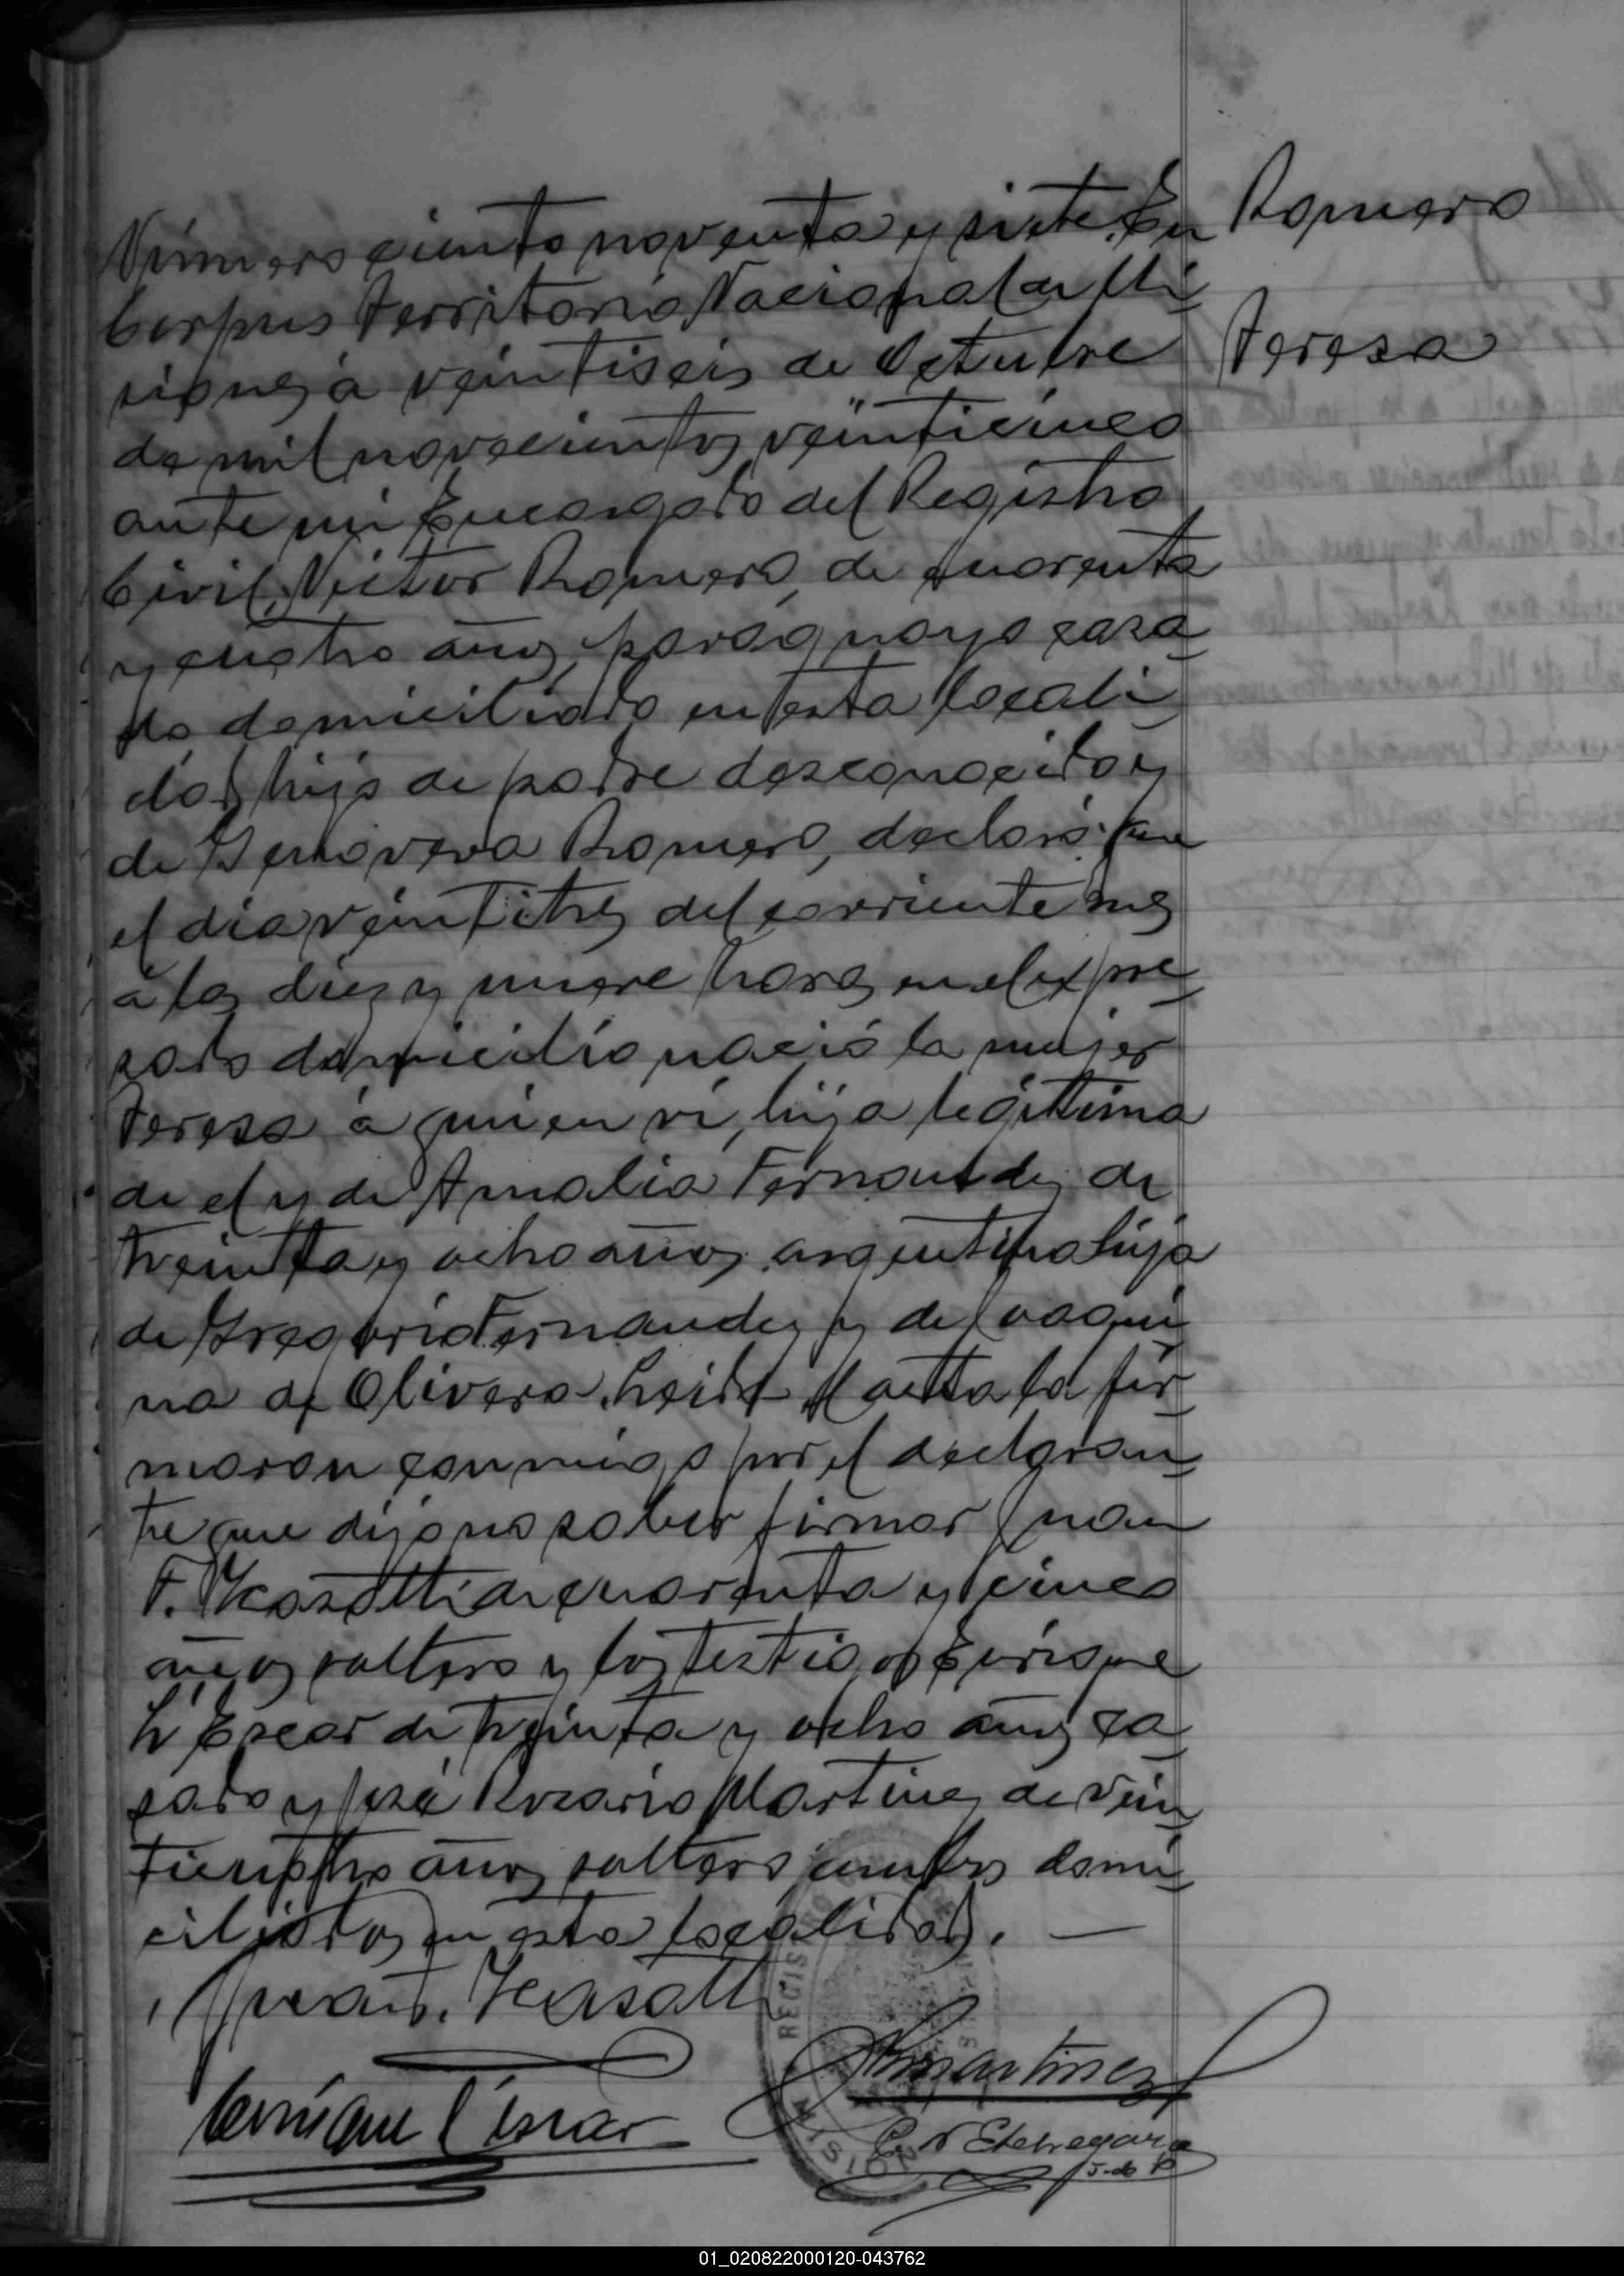 Número ciento noventa y siete. En
Corpus Territorio Nacional de Mi
siones á veintiseis de Octubre
de mil novecientos veinticinco
ante mi Encargado del Registro
Civil, Victor Romero, de cuarenta
y cuatro años, paraguayo casa
do domiciliado en esta locali
dad hijo de padre desconocido y
de Genoveva Romero, declaró: que
el dia veintitres del corriente mes
a las diez y nueve horas en el expre
sado domicilio nació la mujer
Teresa á quien vi, hija legitima
de el y de Amalia Fernandez de
treinta y ocho años argentina hija
de Gregorio Fernandez y de Joaqui
na de Olivera. Leida el acta la fir
maron conmigo por el declaran
te que dijo no saber firmar Juan
F. de cuarenta y cinco
años soltero y los testigos Enrique
L Escar de treinta y ocho años ca
sado y José Rosario Martinez de vein
ticuatro años soltero ambos domi
ciliados en esta localidad. —
Romero
Teresa
Juan F.
Martinez
Enrique L Escar
Etchegaray
J. de P.
REGISTRO
MISIONES
01_020822000120-043762